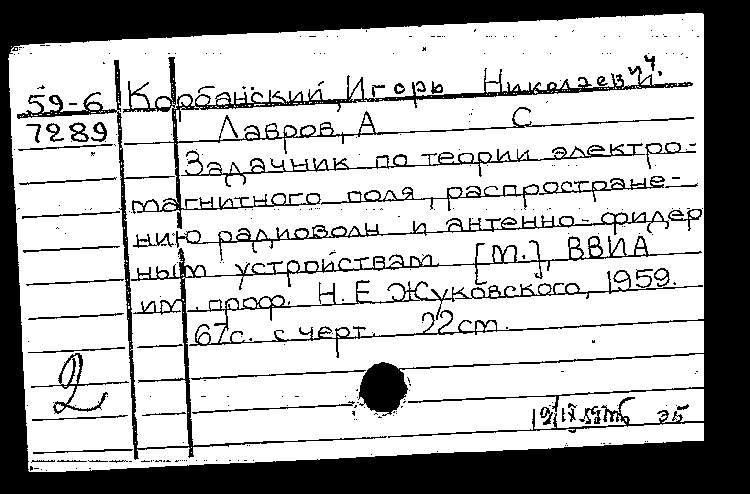 59-6 Корбанский, Игорь Николаевич.
7289 Лавров, А С
Задачник по теории электро-
магнитного поля, распростране-
нию радиоволн и антенно-фидер
ным устройствам [М.], ВВИА
им. проф. Н.Е Жуковского, 1959.
67с. с черт. 22см.
2
эб